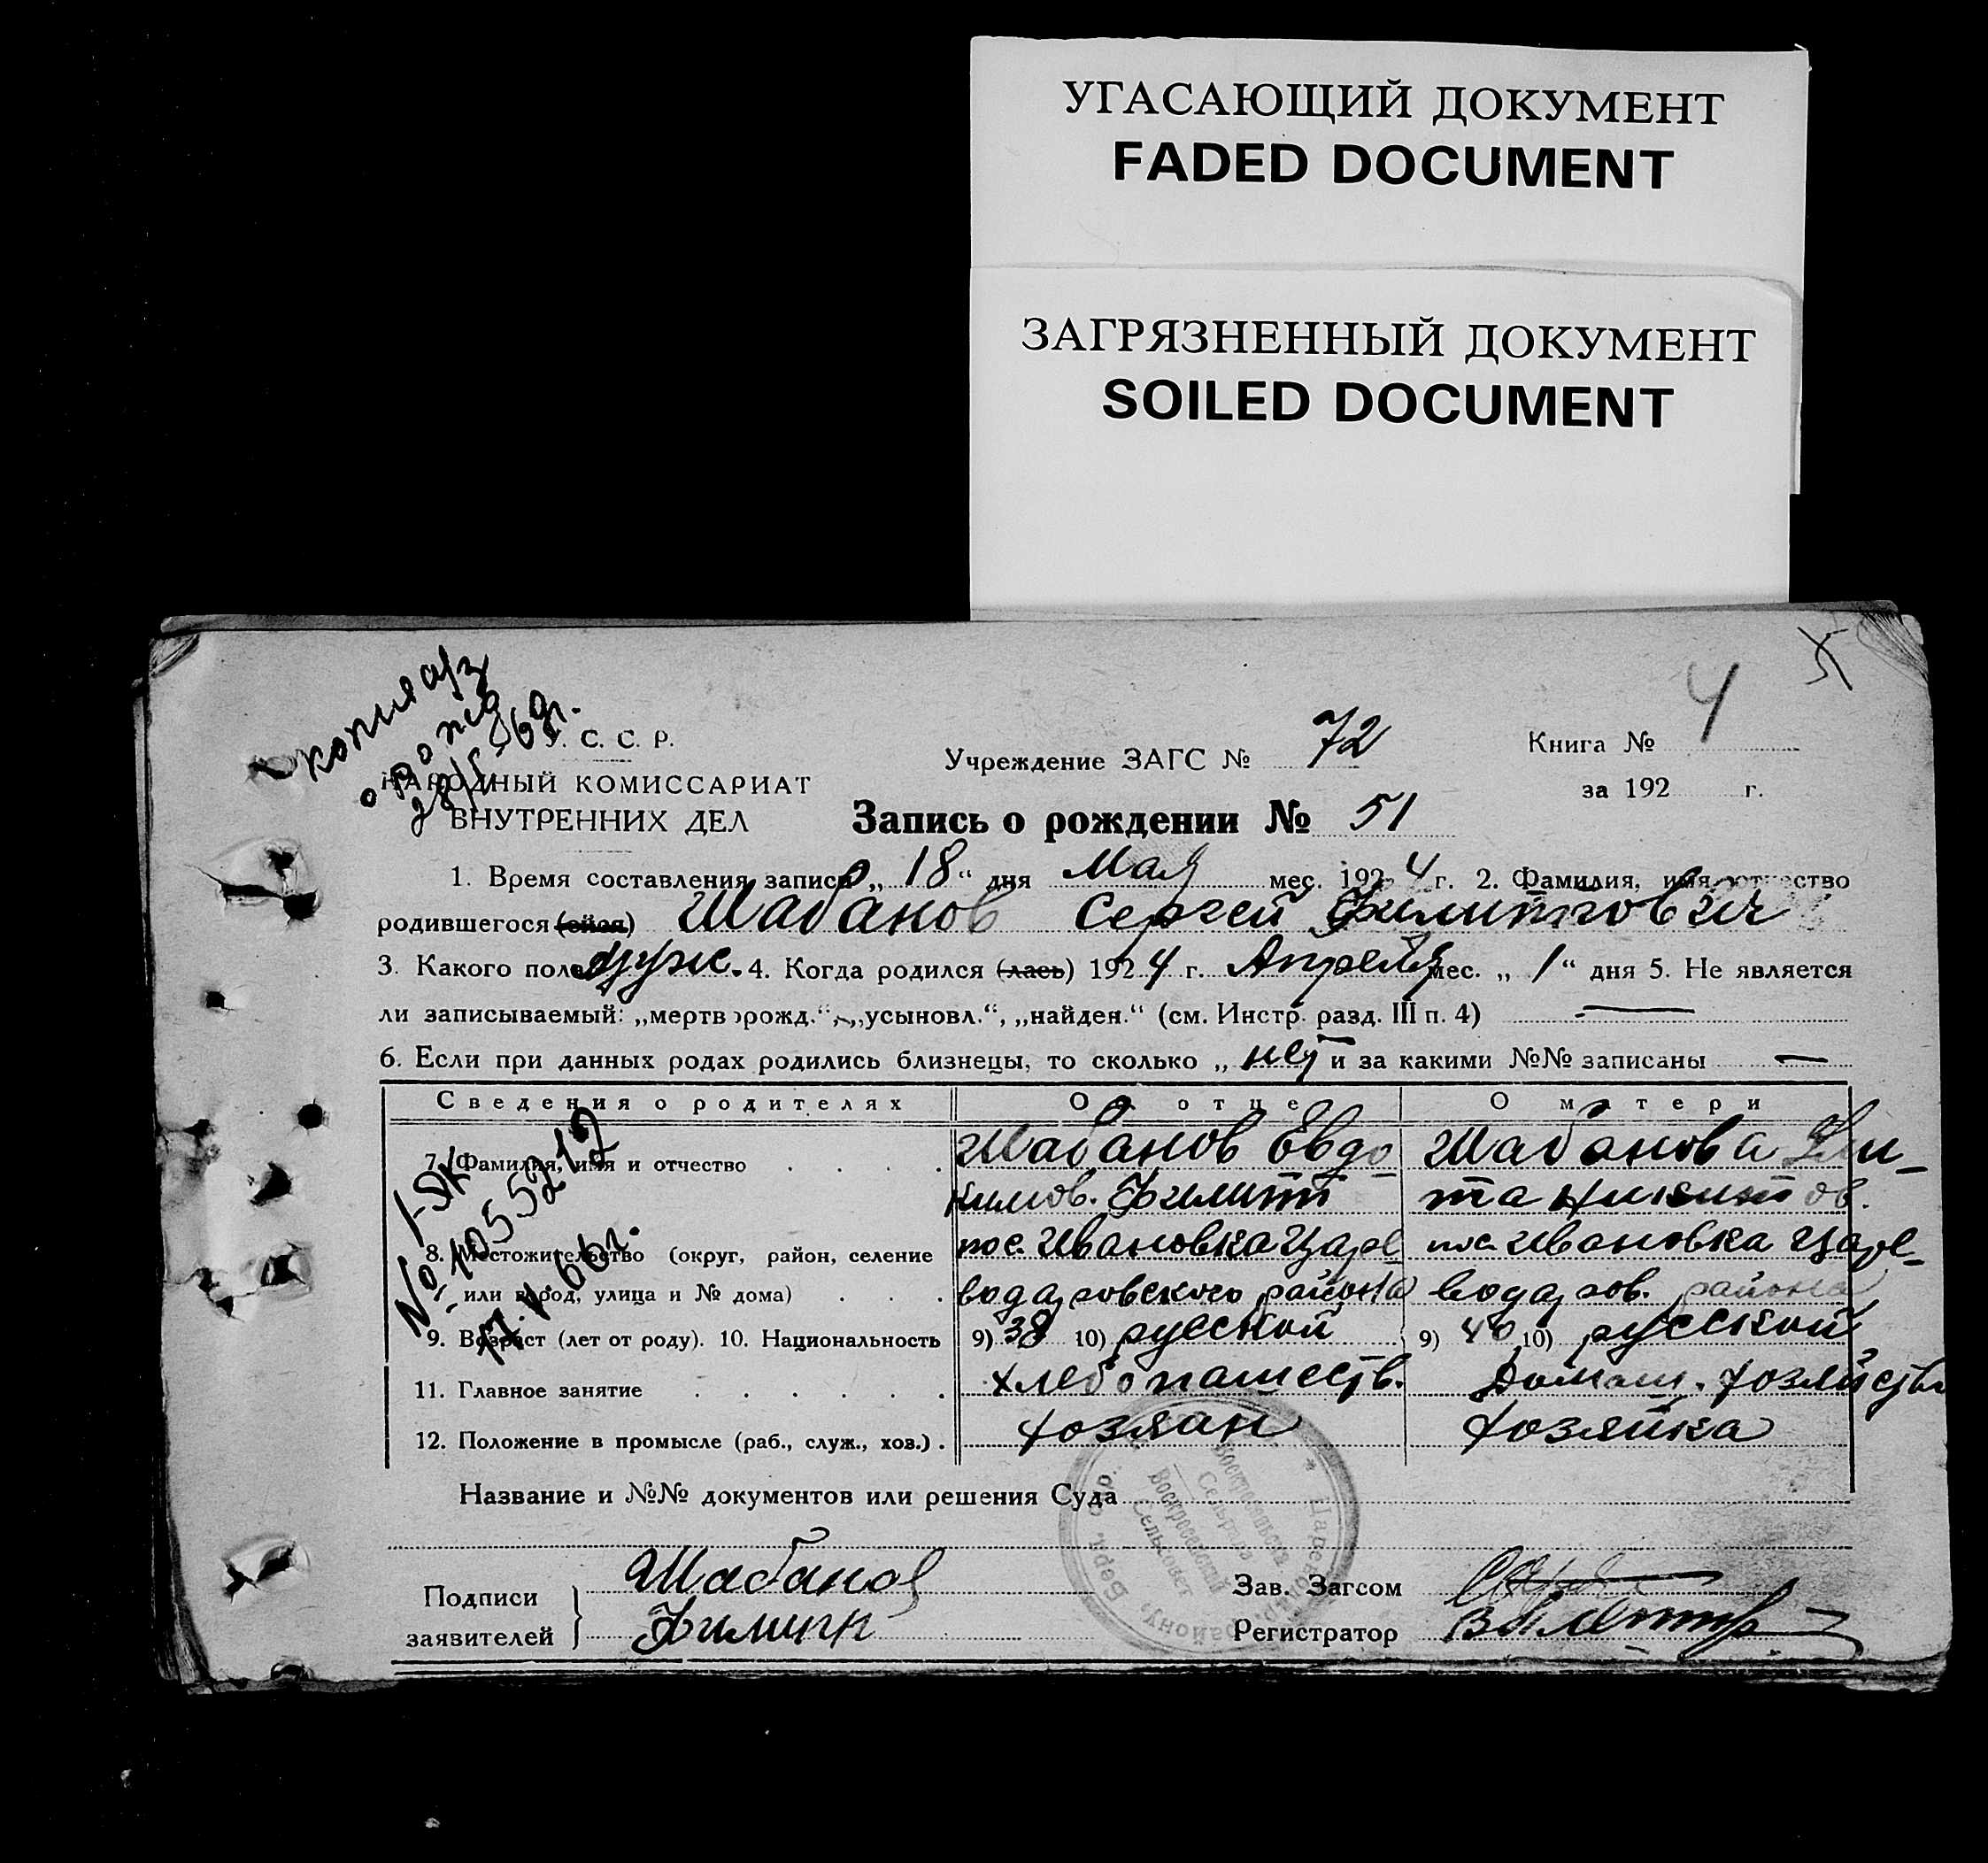 УГАСАЮЩИЙ ДОКУМЕНТ
FADED DOCUMENT
ЗАГРЯЗНЕННЫЙ ДОКУМЕНТ
SOILED DOCUMENT
4
копия
о рожд
28/V-69г.
У. С. С. Р.
НАРОДНЫЙ КОМИССАРИАТ
ВНУТРЕННИХ ДЕЛ
Учреждение ЗАГС № 72
Книга №
за 192 г.
Запись о рождении № 51
1. Время составления записи „ 18 “ дня Мая мес. 1924 г. 2. Фамилия, имя, отчество
родившегося (ейся) Шабанов Сергей Филиппович
3. Какого пола муж. 4. Когда родился (лась) 1924 г. Апреля мес. „ 1 “ дня 5. Не является
ли записываемый: „мертворожд.“, „усыновл.“, „найден.“ (см. Инстр. разд. III п. 4) —
6. Если при данных родах родились близнецы, то сколько „ нет и за какими №№ записаны —
Сведения о родителях
Об отце
О матери
7. Фамилия, имя и отчество
Шабанов Евдо
кимов. Филипп
Шабанова
та
8. Местожительство (округ, район, селение
или город, улица и № дома)
пос. Ивановка Царе
водаровского района
пос. Ивановка Царе-
водаров. района
9. Возраст (лет от роду). 10. Национальность
9) 38 10) русский
9) 40 10) русский
11. Главное занятие
хлебопашеств.
Домаш. хозяйство
12. Положение в промысле (раб., служ., хоз.)
хозяин
хозяйка
№ I-ЯК
№ 1055212
17.V.66г.
Название и №№ документов или решения Суда
Подписи
заявителей
Шабанов
Филипп
Зав. Загсом
Регистратор
Воскресенский
Сельсовет